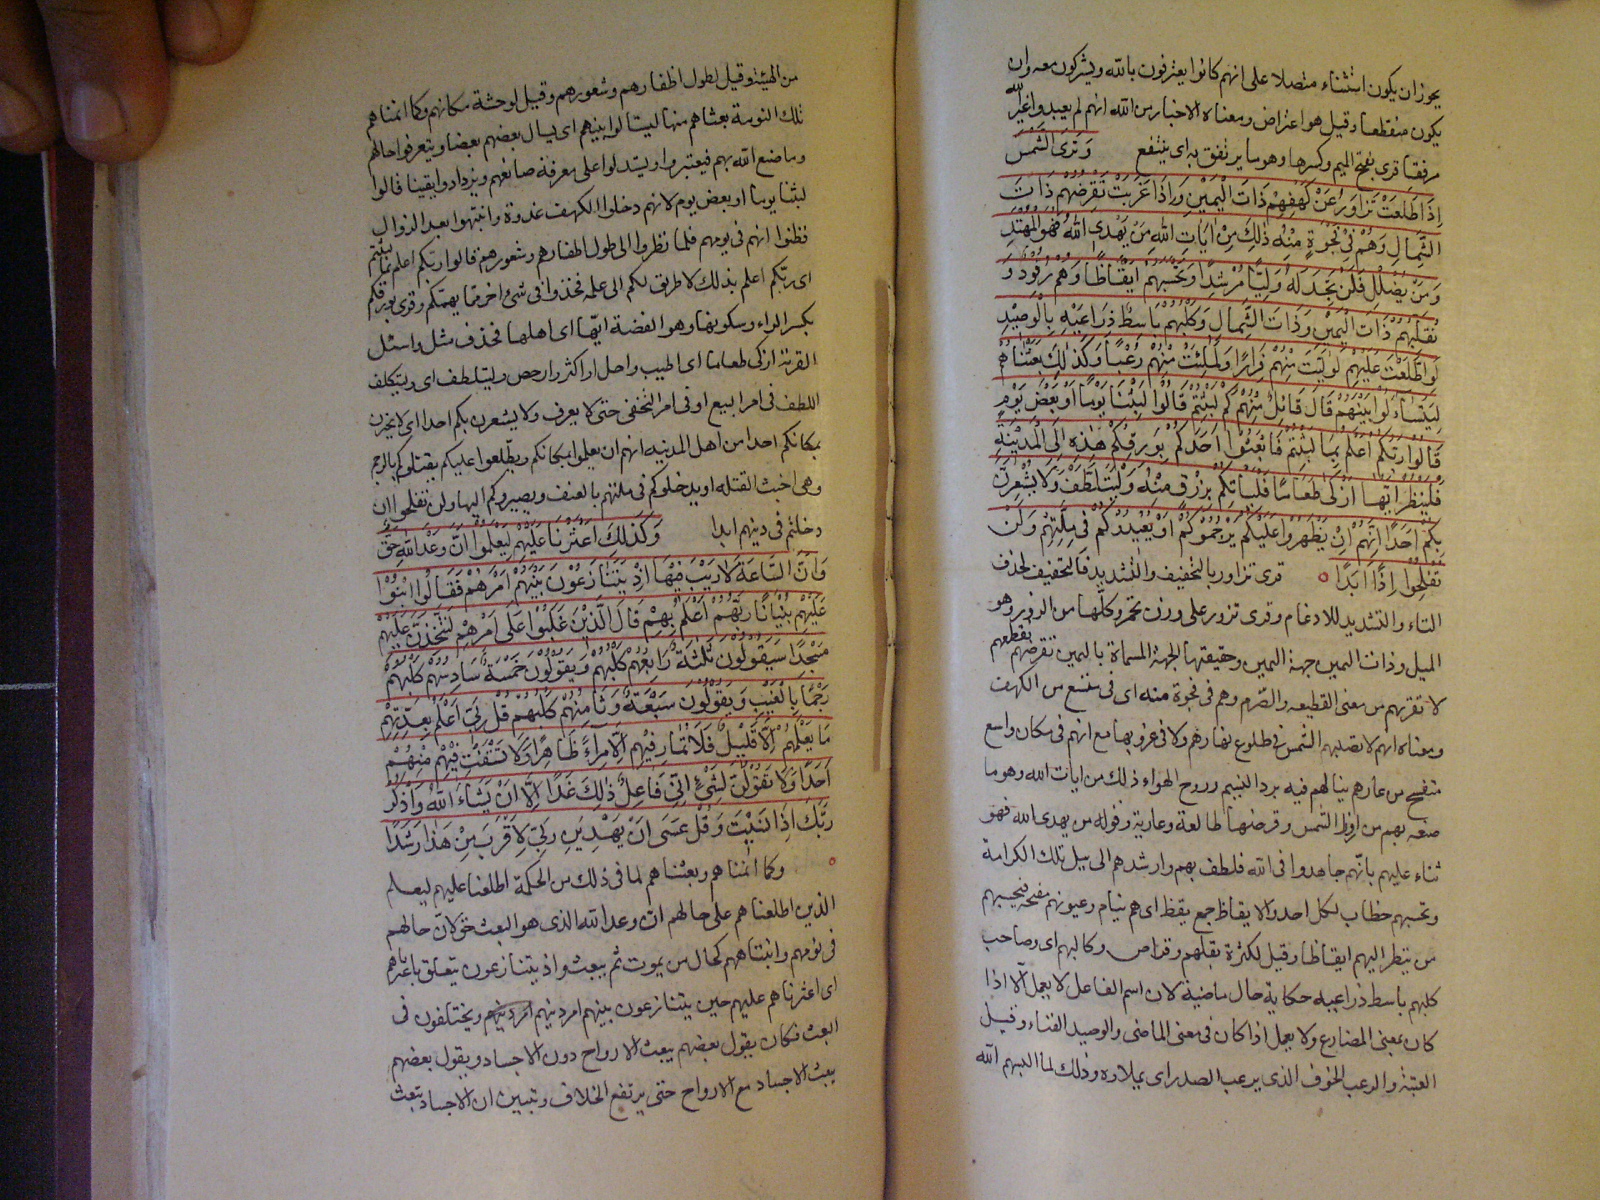 يجوز ان يكون استثناء متصلا على انهم كانوا يعترفون بالله ويشركون معه وان
يكون منقطعا وقيل هو اعتراض ومعناه الاخبار من الله انهم لم يعبدوا غير الله
مرفقا قرى بفتح الميم وكسرها وهو ما يرتفق به اى ينتفع وَتَرَى الشَّمْسَ
اِذَا طَلَعَتْ تَزَاوَرُ عَنْ كَهْفِهِمْ ذَاتَ الْيَمِيْنِ وَاِذَا غَرَبَتْ تَقْرِضُهُمْ ذَاتَ
الشِّمَالِ وَهُمْ فِيْ فَجْوَةٍ مِنْهُ ذٰلِكَ مِنْ اٰيَاتِ اللهِ مَنْ يَهْدِى اللهُ فَهُوَ الْمُهْتَدِ
وَمَنْ يُضْلِلْ فَلَنْ تَجِدَ لَهُ وَلِيًّا مُرْشِدًا وَتَحْسَبُهُمْ اَيْقَاظًا وَهُمْ رُقُوْدٌ وَ
نُقَلِّبُهُمْ ذَاتَ الْيَمِيْنِ وَذَاتَ الشِّمَالِ وَكَلْبُهُمْ بَاسِطٌ ذِرَاعَيْهِ بِالْوَصِيْدِ
لَوِ اطَّلَعْتَ عَلَيْهِمْ لَوَلَّيْتَ مِنْهُمْ فِرَارًا وَلَمُلِئْتَ مِنْهُمْ رُعْبًا وَكَذٰلِكَ بَعَثْنَاهُمْ
لِيَتَسَاءَلُوا بَيْنَهُمْ قَالَ قَائِلٌ مِنْهُمْ كَمْ لَبِثْتُمْ قَالُوْا لَبِثْنَا يَوْمًا اَوْ بَعْضَ يَوْمٍ
قَالُوْا رَبُّكُمْ اَعْلَمُ بِمَا لَبِثْتُمْ فَابْعَثُوْا اَحَدَكُمْ بِوَرِقِكُمْ هٰذِهِ اِلَى الْمَدِيْنَةِ
فَلْيَنْظُرْ اَيُّهَا اَزْكٰى طَعَامًا فَلْيَأْتِكُمْ بِرِزْقٍ مِنْهُ وَلْيَتَلَطَّفْ وَلَا يُشْعِرَنَّ
بِكُمْ اَحَدًا اِنَّهُمْ اِنْ يَظْهَرُوْا عَلَيْكُمْ يَرْجُمُوْكُمْ اَوْ يُعِيْدُوْكُمْ فِى مِلَّتِهِمْ وَلَنْ
تُفْلِحُوْا اِذًا اَبَدًا قرى تزاور بالتخفيف والتشديد فالتخفيف لحذف
التاء والتشديد للادغام وقرى تزور على وزن تحمر وكلها من الزور وهو
الميل وذات اليمين جهة اليمين وحقيقتها الجهة المسماة باليمين تقرضهم تقطعهم
لا تقربهم من معنى القطيعه والصرم وهم فى فجوة منه اى فى متسع من الكهف
ومعناه انهم لا تصيبهم الشمس فى طلوع نهارهم ولا فى غروبها مع انهم فى مكان واسع
متفسح من غارهم ينالهم فيه برد النسيم وروح الهواء ذلك من ايات الله وهو ما
صنعه بهم من ازورار الشمس وقرضها طالعة وغاربة وقوله من يهدى الله فهو
ثناء عليهم بانهم جاهدوا فى الله فلطف بهم وارشدهم الى نيل تلك الكرامة
وتحسبهم خطاب لكل احد والايقاظ جمع يقظ اى هم نيام وعيونهم مفتحة فيحسبهم
من ينظر اليهم ايقاظا وقيل لكثرة تقلبهم وقرا ص وكالبهم اى وصاحب
كلبهم باسط ذراعيه حكاية حال ماضية لان اسم الفاعل لا يعمل الا اذا
كان بمعنى المضارع ولا يعمل اذا كان فى معنى الماضى والوصيد الفناء وقيل
العتبة والرعب الخوف الذى يرعب الصدر اى يملاوه وذلك لما البسهم الله
من الهيئة وقيل لطول اظفارهم وشعورهم وقيل لوحشة مكانهم وكما انمناهم
تلك النومة بعثناهم منها ليتسالوا بينهم اى ليسال بعضهم بعضا ويتعرفوا حالهم
وما صنع الله بهم فيعتبروا ويستدلوا على معرفة صانعهم ويزدادوا يقينا قالوا
لبثنا يوما او بعض يوم لانهم دخلوا الكهف غدوة وانتبهوا بعد الزوال
فظنوا انهم فى يومهم فلما نظروا الى طول اظفارهم وشعورهم قالوا ربكم اعلم بما لبثتم
اى ربكم اعلم بذلك لا طريق لكم الى علمه فخذوا فى شئ اخر مما يهمكم وقرى بورقكم
بكسر الراء وسكونها وهو الفضة ايها اى اهلها فحذف مثل واسئل
القرية ازكى طعاما اى اطيب واحل او اكثر وارخص وليتلطف اى ويتكلف
اللطف فى امر البيع او فى امر التخفى حتى لا يعرف ولا يشعرن بكم احدا اى لا يخبرن
بمكانكم احدا من اهل المدينه انهم ان يعلموا بمكانكم ويطلعوا عليكم يقتلوكم بالرجم
وهى اخبث القتلة او يدخلوكم فى ملتهم بالعنف ويصيروكم اليها ولن تفلحوا ان
دخلتم فى دينهم ابدا وَكَذٰلِكَ اَعْثَرْنَا عَلَيْهِمْ لِيَعْلَمُوْا اَنَّ وَعْدَ اللهِ حَقٌّ
وَاَنَّ السَّاعَةَ لَا رَيْبَ فِيْهَا اِذْ يَتَنَازَعُوْنَ بَيْنَهُمْ اَمْرَهُمْ فَقَالُوا ابْنُوْا
عَلَيْهِمْ بُنْيَانًا رَبُّهُمْ اَعْلَمُ بِهِمْ قَالَ الَّذِيْنَ غَلَبُوْا عَلٰى اَمْرِهِمْ لَنَتَّخِذَنَّ عَلَيْهِمْ
مَسْجِدًا سَيَقُوْلُوْنَ ثَلٰثَةٌ رَابِعُهُمْ كَلْبُهُمْ وَيَقُوْلُوْنَ خَمْسَةٌ سَادِسُهُمْ كَلْبُهُمْ
رَجْمًا بِالْغَيْبِ وَيَقُوْلُوْنَ سَبْعَةٌ وَثَامِنُهُمْ كَلْبُهُمْ قُلْ رَبِّى اَعْلَمُ بِعِدَّتِهِمْ
مَا يَعْلَمُهُمْ اِلَّا قَلِيْلٌ فَلَا تُمَارِ فِيْهِمْ اِلَّا مِرَاءً ظَاهِرًا وَلَا تَسْتَفْتِ فِيْهِمْ مِنْهُمْ
اَحَدًا وَلَا تَقُوْلَنَّ لِشَيْءٍ اِنِّى فَاعِلٌ ذٰلِكَ غَدًا اِلَّا اَنْ يَشَاءَ اللهُ وَاذْكُرْ
رَبَّكَ اِذَا نَسِيْتَ وَقُلْ عَسٰى اَنْ يَهْدِيَنِ رَبِّى لِاَقْرَبَ مِنْ هٰذَا رَشَدًا
وكما انمناهم وبعثناهم لما فى ذلك من الحكمة اطلعنا عليهم ليعلم
الذين اطلعناهم على حالهم ان وعد الله الذى هو البعث حق لان حالهم
فى نومهم وانتباههم كحال من يموت ثم يبعث واذ يتنازعون يتعلق باعثرنا
اى اعثرناهم عليهم حين يتنازعون بينهم امر دينهم ويختلفون فى
البعث فكان يقول بعضهم يبعث الارواح دون الاجساد ويقول بعضهم
يبعث الاجساد مع الارواح حتى يرتفع الخلاف وتبين ان الاجساد تبعث